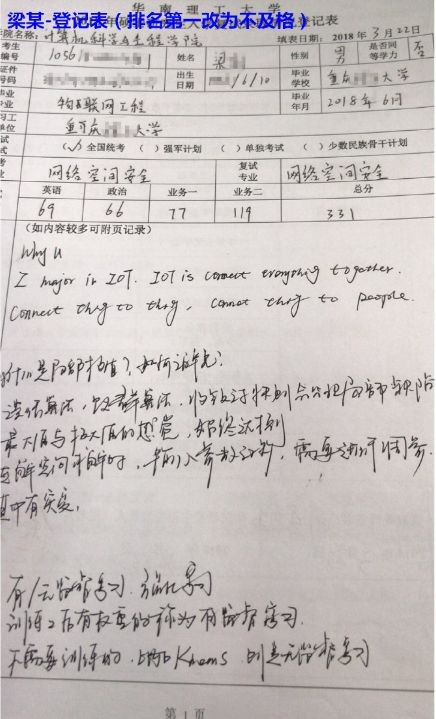 梁某-登记表（排名第一改为不及格）
华南理工大学
登记表
院名称：计算机科学与工程学院 填表日期：2018年3月22日
考生编号 10561 姓名 梁 性别 男 是否同等学力 否
证件号码 出生日期 /6/10 毕业学校 重庆 大学
毕业专业 物联网工程 毕业年月 2018年6月
学习工作单位 重庆 大学
考试方式 (√)全国统考 ( )强军计划 ( )单独考试 ( )少数民族骨干计划
网络空间安全 复试专业 网络空间安全
英语 政治 业务一 业务二 总分
69 66 77 119 331
(如内容较多可附页记录)
Why u
I major in IOT. IOT is connect everything together.
Connect thing to thing, connect thing to people.
什么是局部极值？如何避免？
遗传算法，
最大值与极大值的
需要进行调参
其中有实变。
有/无监督学习 强化学习
训练之后有权重的称为有监督学习
不需要训练的，比如Kmeans 则是无监督学习
第 1 页